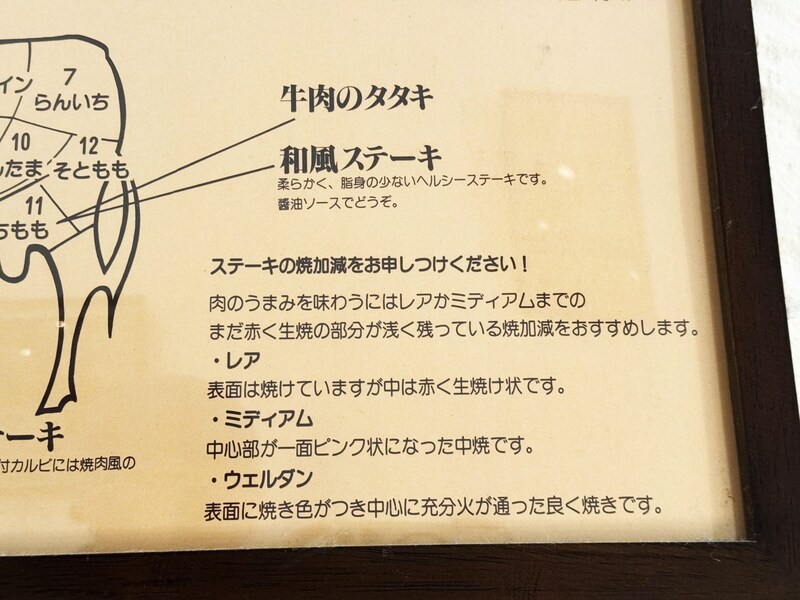 イン
7
らんいち
10
たま
12
そともも
11
もも
牛肉のタタキ
和風ステーキ
柔らかく、脂身の少ないヘルシーステーキです。
醬油ソースでどうぞ。
ステーキの焼加減をお申しつけください！
肉のうまみを味わうにはレアかミディアムまでの
まだ赤く生焼の部分が浅く残っている焼加減をおすすめします。
・レア
表面は焼けていますが中は赤く生焼け状です。
・ミディアム
中心部が一面ピンク状になった中焼です。
・ウェルダン
表面に焼き色がつき中心に充分火が通った良く焼きです。
ーキ
付カルビには焼肉風の